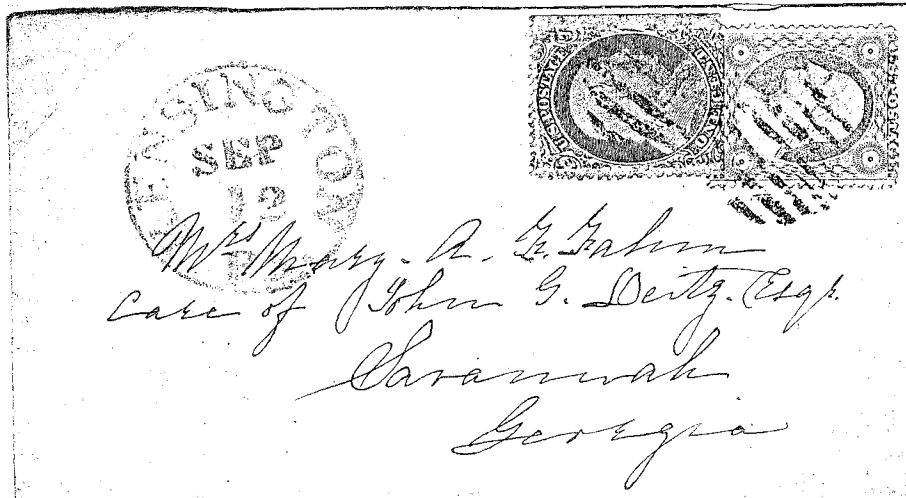 KENSINGTON
SEP
12
U.S. POSTAGE
Mrs Mary. A. F. Fahm
Care of John G. Deitz. Esqr.
Savannah
Georgia